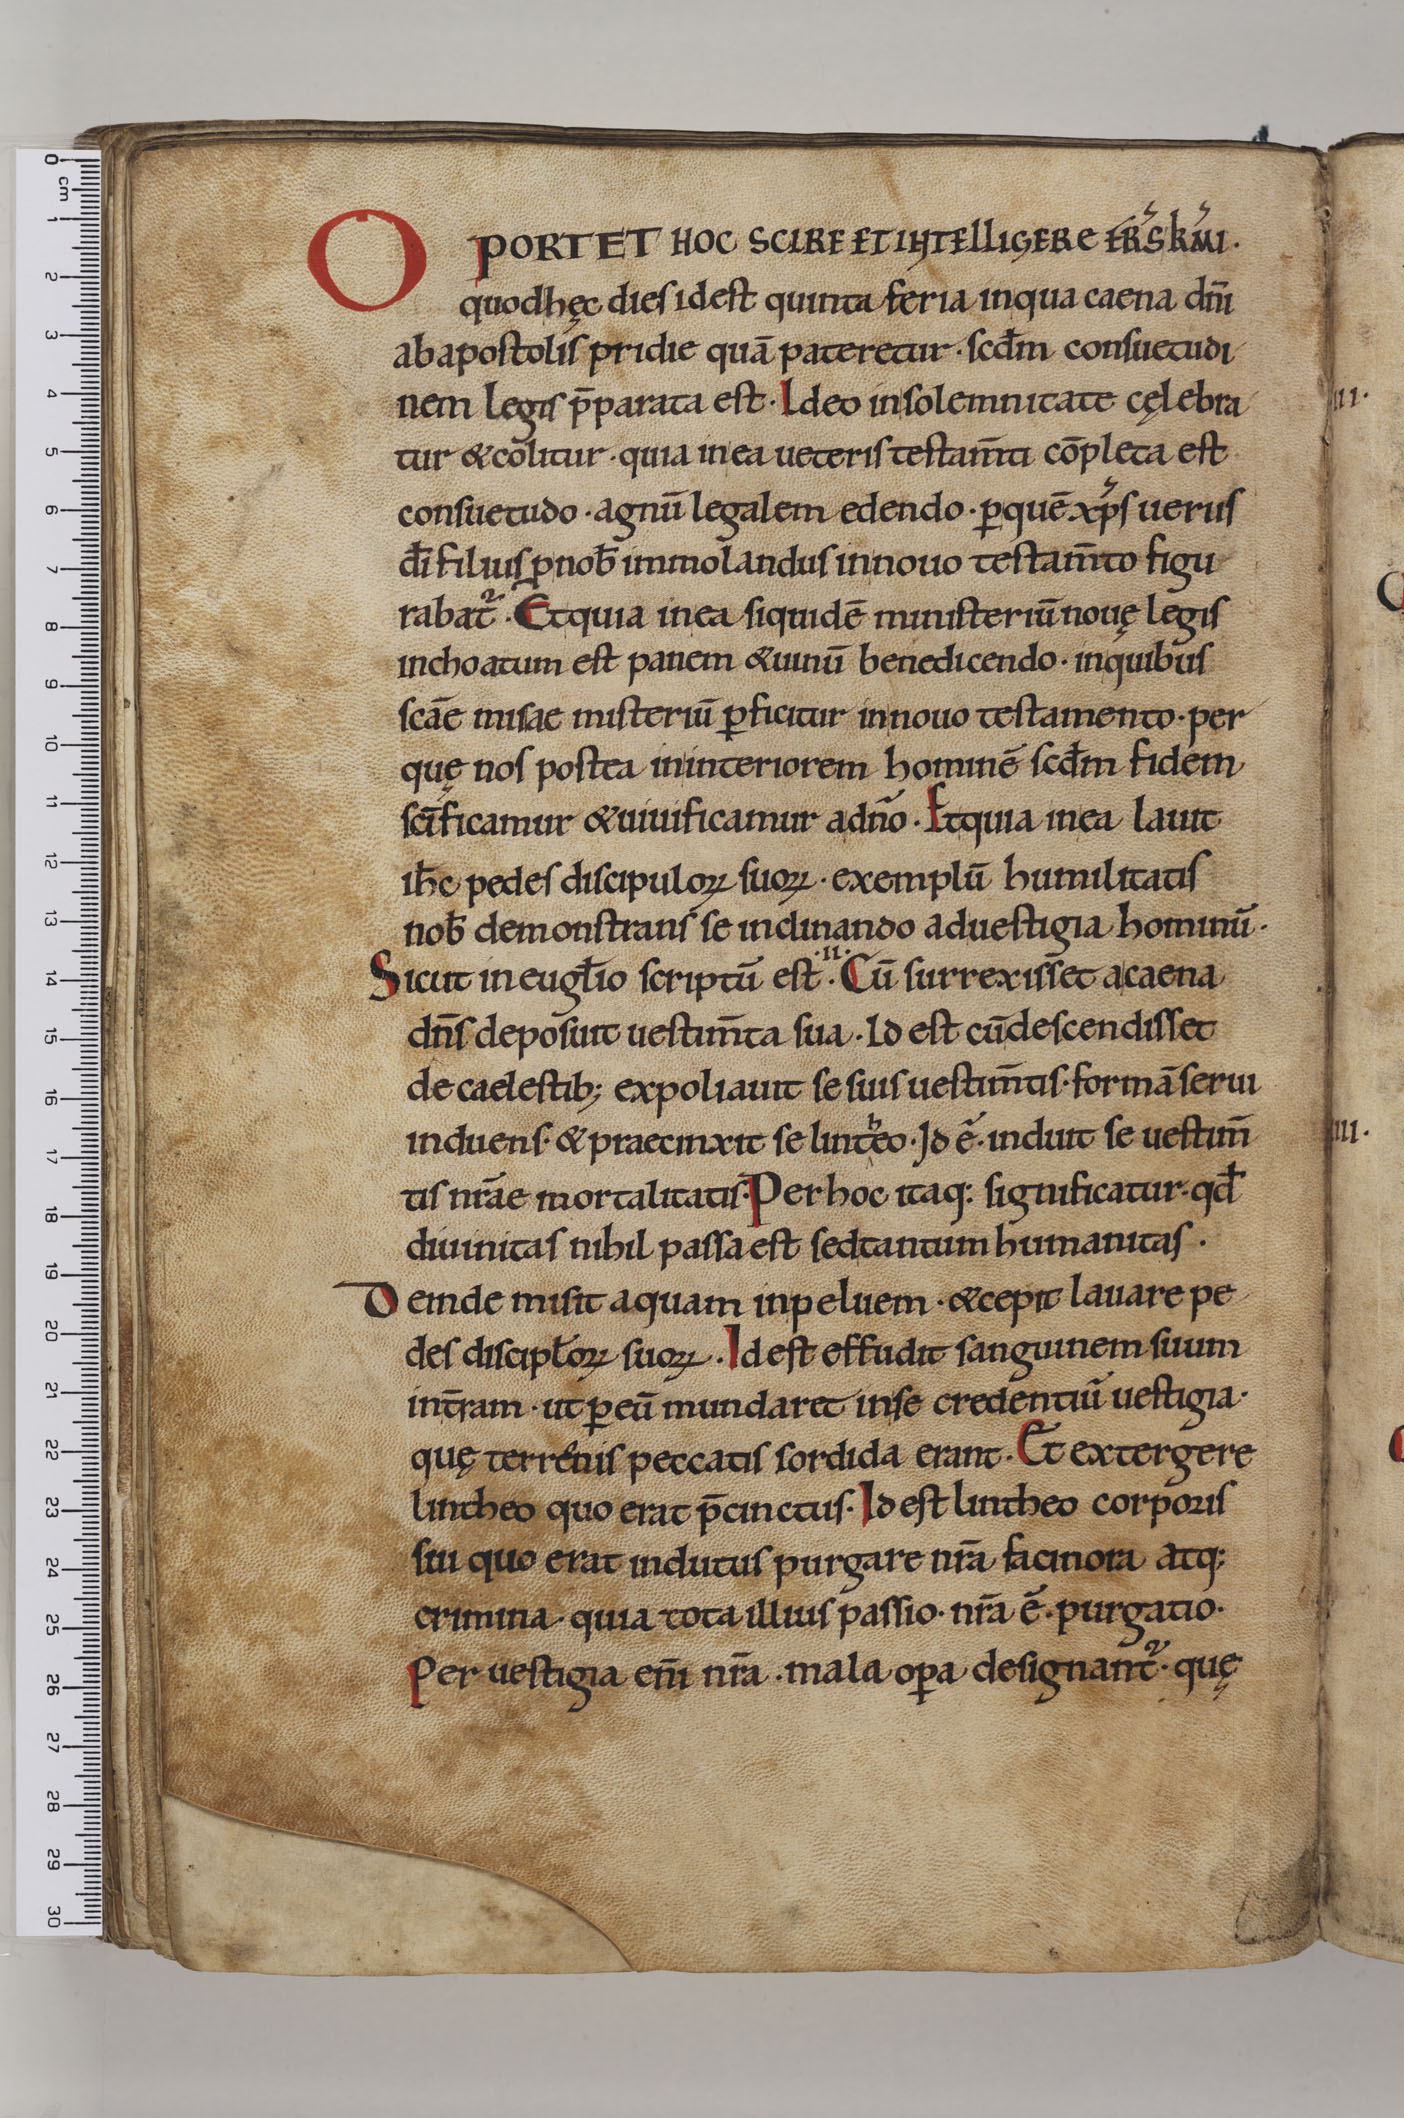 OPORTET HOC SCIRE ET INTELLIGERE FR̅S KM̅I.
quod hęc dies id est quinta feria in qua caena dn̄i
ab apostolis pridie quā pateretur · scd̄m consuetudi
nem legis p̄parata est · Ideo in solemnitate cęlebra
tur & colitur · quia in ea ueteris testam̄ti cōpleta est
consuetudo · agnū legalem edendo · ꝑ quē xp̄s uerus
dī filius ꝓ nob̄ immolandus in nouo testam̄to figu
rabat᷑ · Et quia in ea siquidē ministeriū nouę legis
inchoatum est panem & uinū benedicendo · in quibus
scāe misae misteriū ꝑficitur in nouo testamento · per
quę nos postea in interiorem hominē scd̄m fidem
scīficamur & uiuificamur a dn̄o · Et quia in ea lauit
ih̄c pedes discipuloꝝ suoꝝ · exemplū humilitatis
nob̄ demonstrans se inclinando ad uestigia hominū ·
Sicut in eugl̄io scriptū est ·II· Cū surrexisset a caena
dn̄s deposuit uestim̄ta sua · Id est cū descendisset
de caelestib; expoliauit se suis uestim̄tis · formā serui
induens · & praecinxit se linteo · Id ē · induit se uestim̄
tis nr̄ae mortalitatis · Per hoc itaq: significatur · qd̄
diuinitas nihil passa est sed tantum humanitas ·
Deinde misit aquam in peluem · & cepit lauare pe
des discipl̄oꝝ suoꝝ · Id est effudit sanguinem suum
in t̄ram · ut ꝑ eū mundaret in se credentiū uestigia ·
quę terrenis peccatis sordida erant · Et extergere
lintheo quo erat p̄cinctus · Id est lintheo corporis
sui quo erat indutus purgare nr̄a facinora atq:
crimina · quia tota illius passio · nr̄a ē · purgatio ·
Per uestigia eni̅ nr̄a · mala oꝑa designant᷑ · quę
III·
III·
0 cm 1 2 3 4 5 6 7 8 9 10 11 12 13 14 15 16 17 18 19 20 21 22 23 24 25 26 27 28 29 30